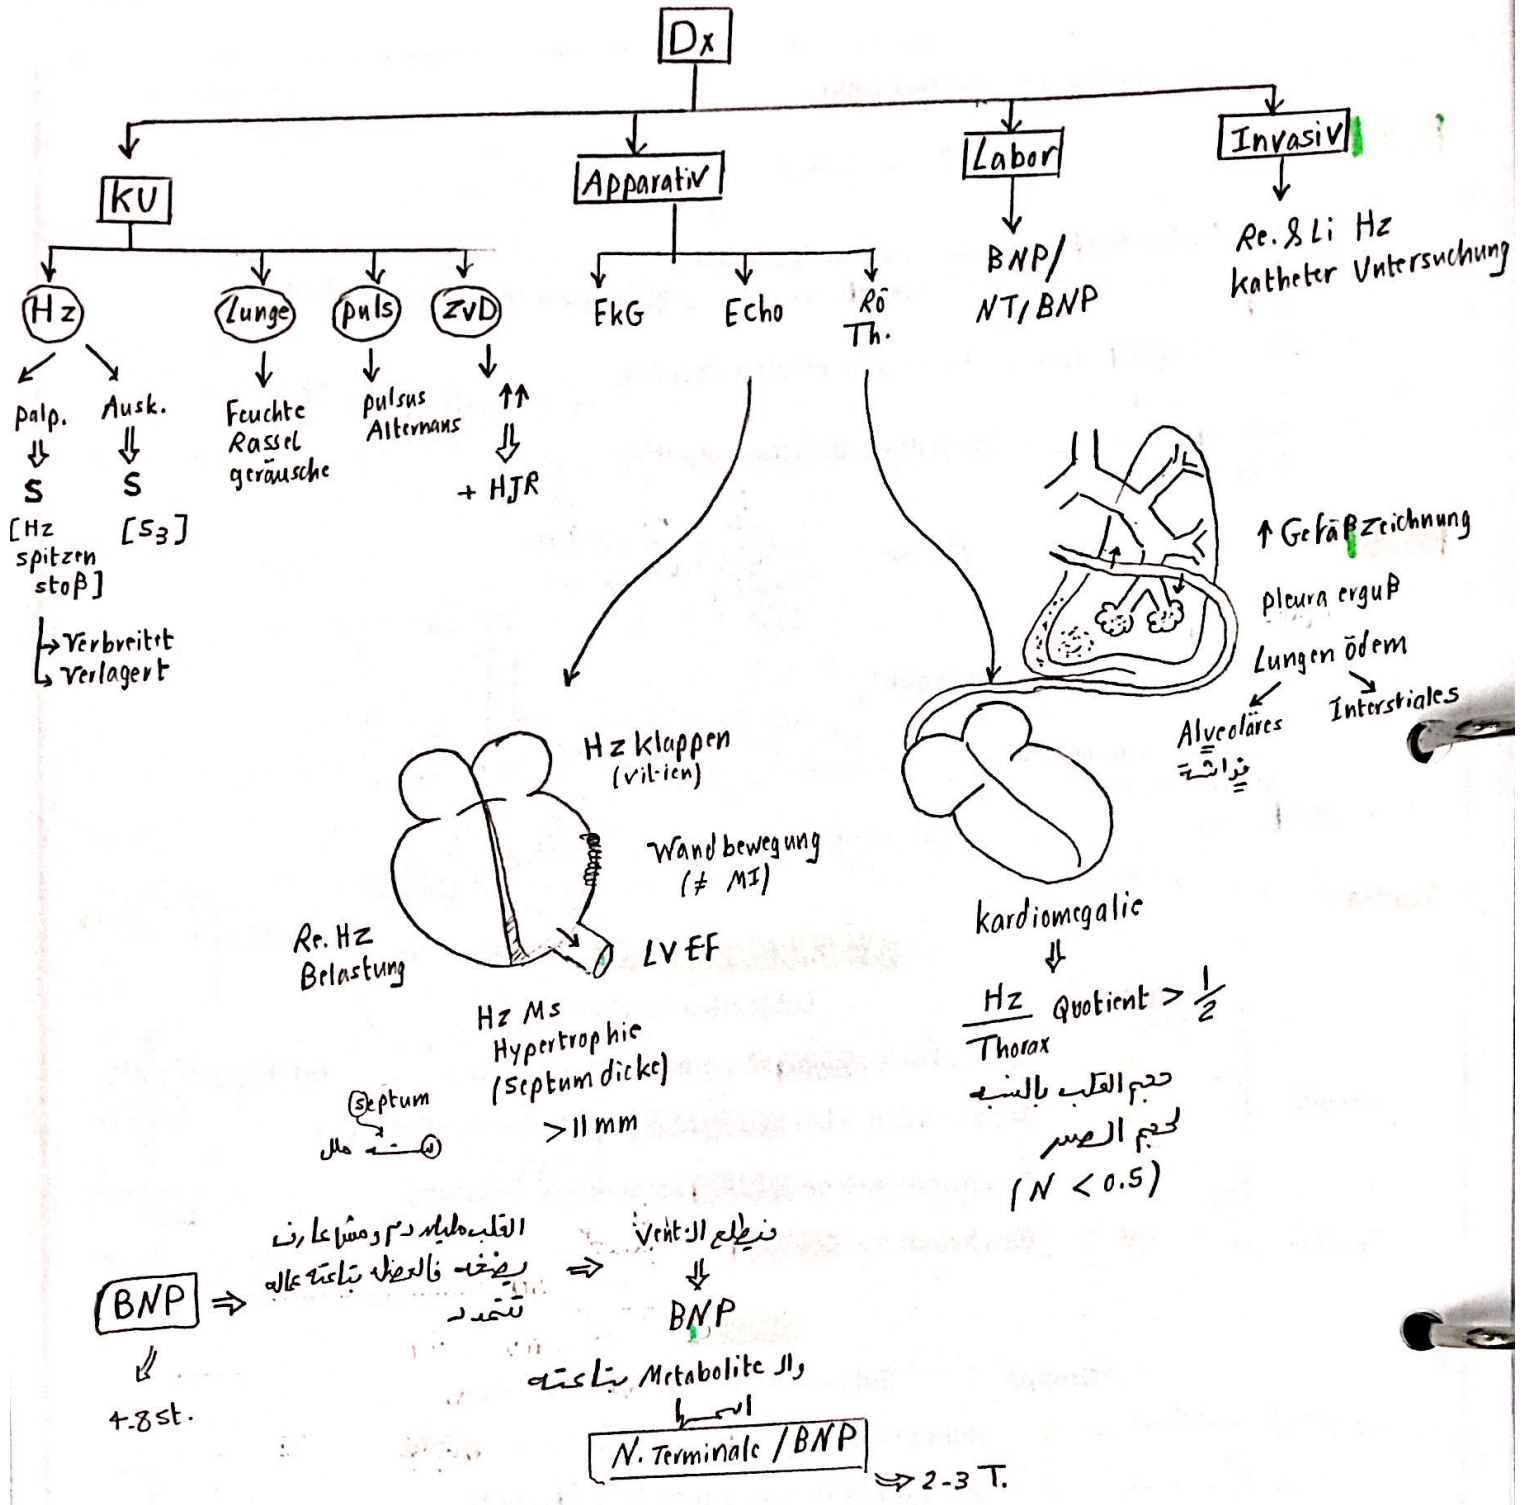 Dx
KU
Apparativ
Labor
Invasiv
Hz
Lunge
puls
ZVD
EKG
Echo
Rö
Th.
BNP/
NT/BNP
Re. & Li Hz
Katheter Untersuchung
palp.
S
[Hz
spitzen
stoß]
Verbreitet
Verlagert
Ausk.
S
[S3]
Feuchte
Rassel
geräusche
pulsus
Alternans
↑↑
+ HJR
↑ Gefäßzeichnung
pleura erguß
Lungen ödem
Alveoläres
Interstiales
Hz klappen
(vitien)
Wand bewegung
(≠ MI)
LVEF
Re. Hz
Belastung
Hz Ms
Hypertrophie
(septum dicke)
> 11 mm
septum
kardiomegalie
Hz
Thorax
Quotient > 1/2
حجم القلب بالنسبه
لحجم الصدر
(N < 0.5)
BNP ⇒
القلب مليان دم ومش عارف
يضخه فالعضله بتاعته عماله
تتمدد
⇒
فيطلع ال Vent.
BNP
4-8 st.
وال Metabolite بتاعته
اسمها
N. Terminale / BNP
⇒ 2-3 T.